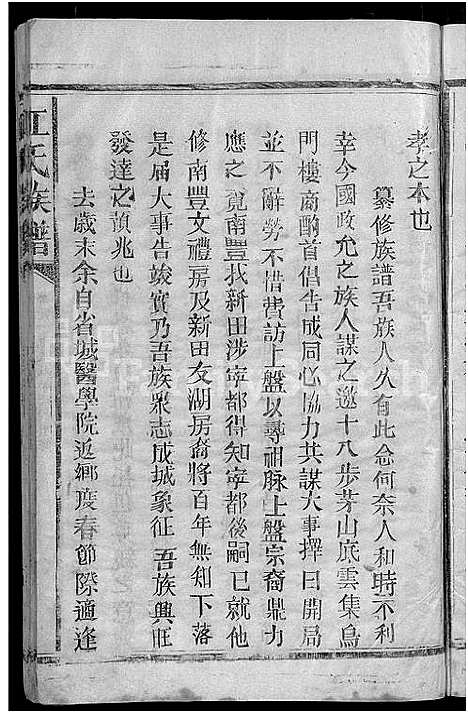 孝之本也
纂修族譜吾族人久有此念何奈人和時不利
幸今國政允之族人謀之邀十八步茅山底雲集烏
門樓商酌首倡告成同心協力共謀大事擇日開局
並不辭勞不惜費訪上盤以尋祖脉上盤宗裔鼎力
應之覓南豐找新田涉寧都得知寧都後嗣已就他
修南豐文禮房及新田友湖房裔將百年無知下落
是届大事告竣實乃吾族衆志成城象征吾族興旺
發達之禎兆也
去歲末余自省城醫學院返鄉度春節際適逢
江氏族譜